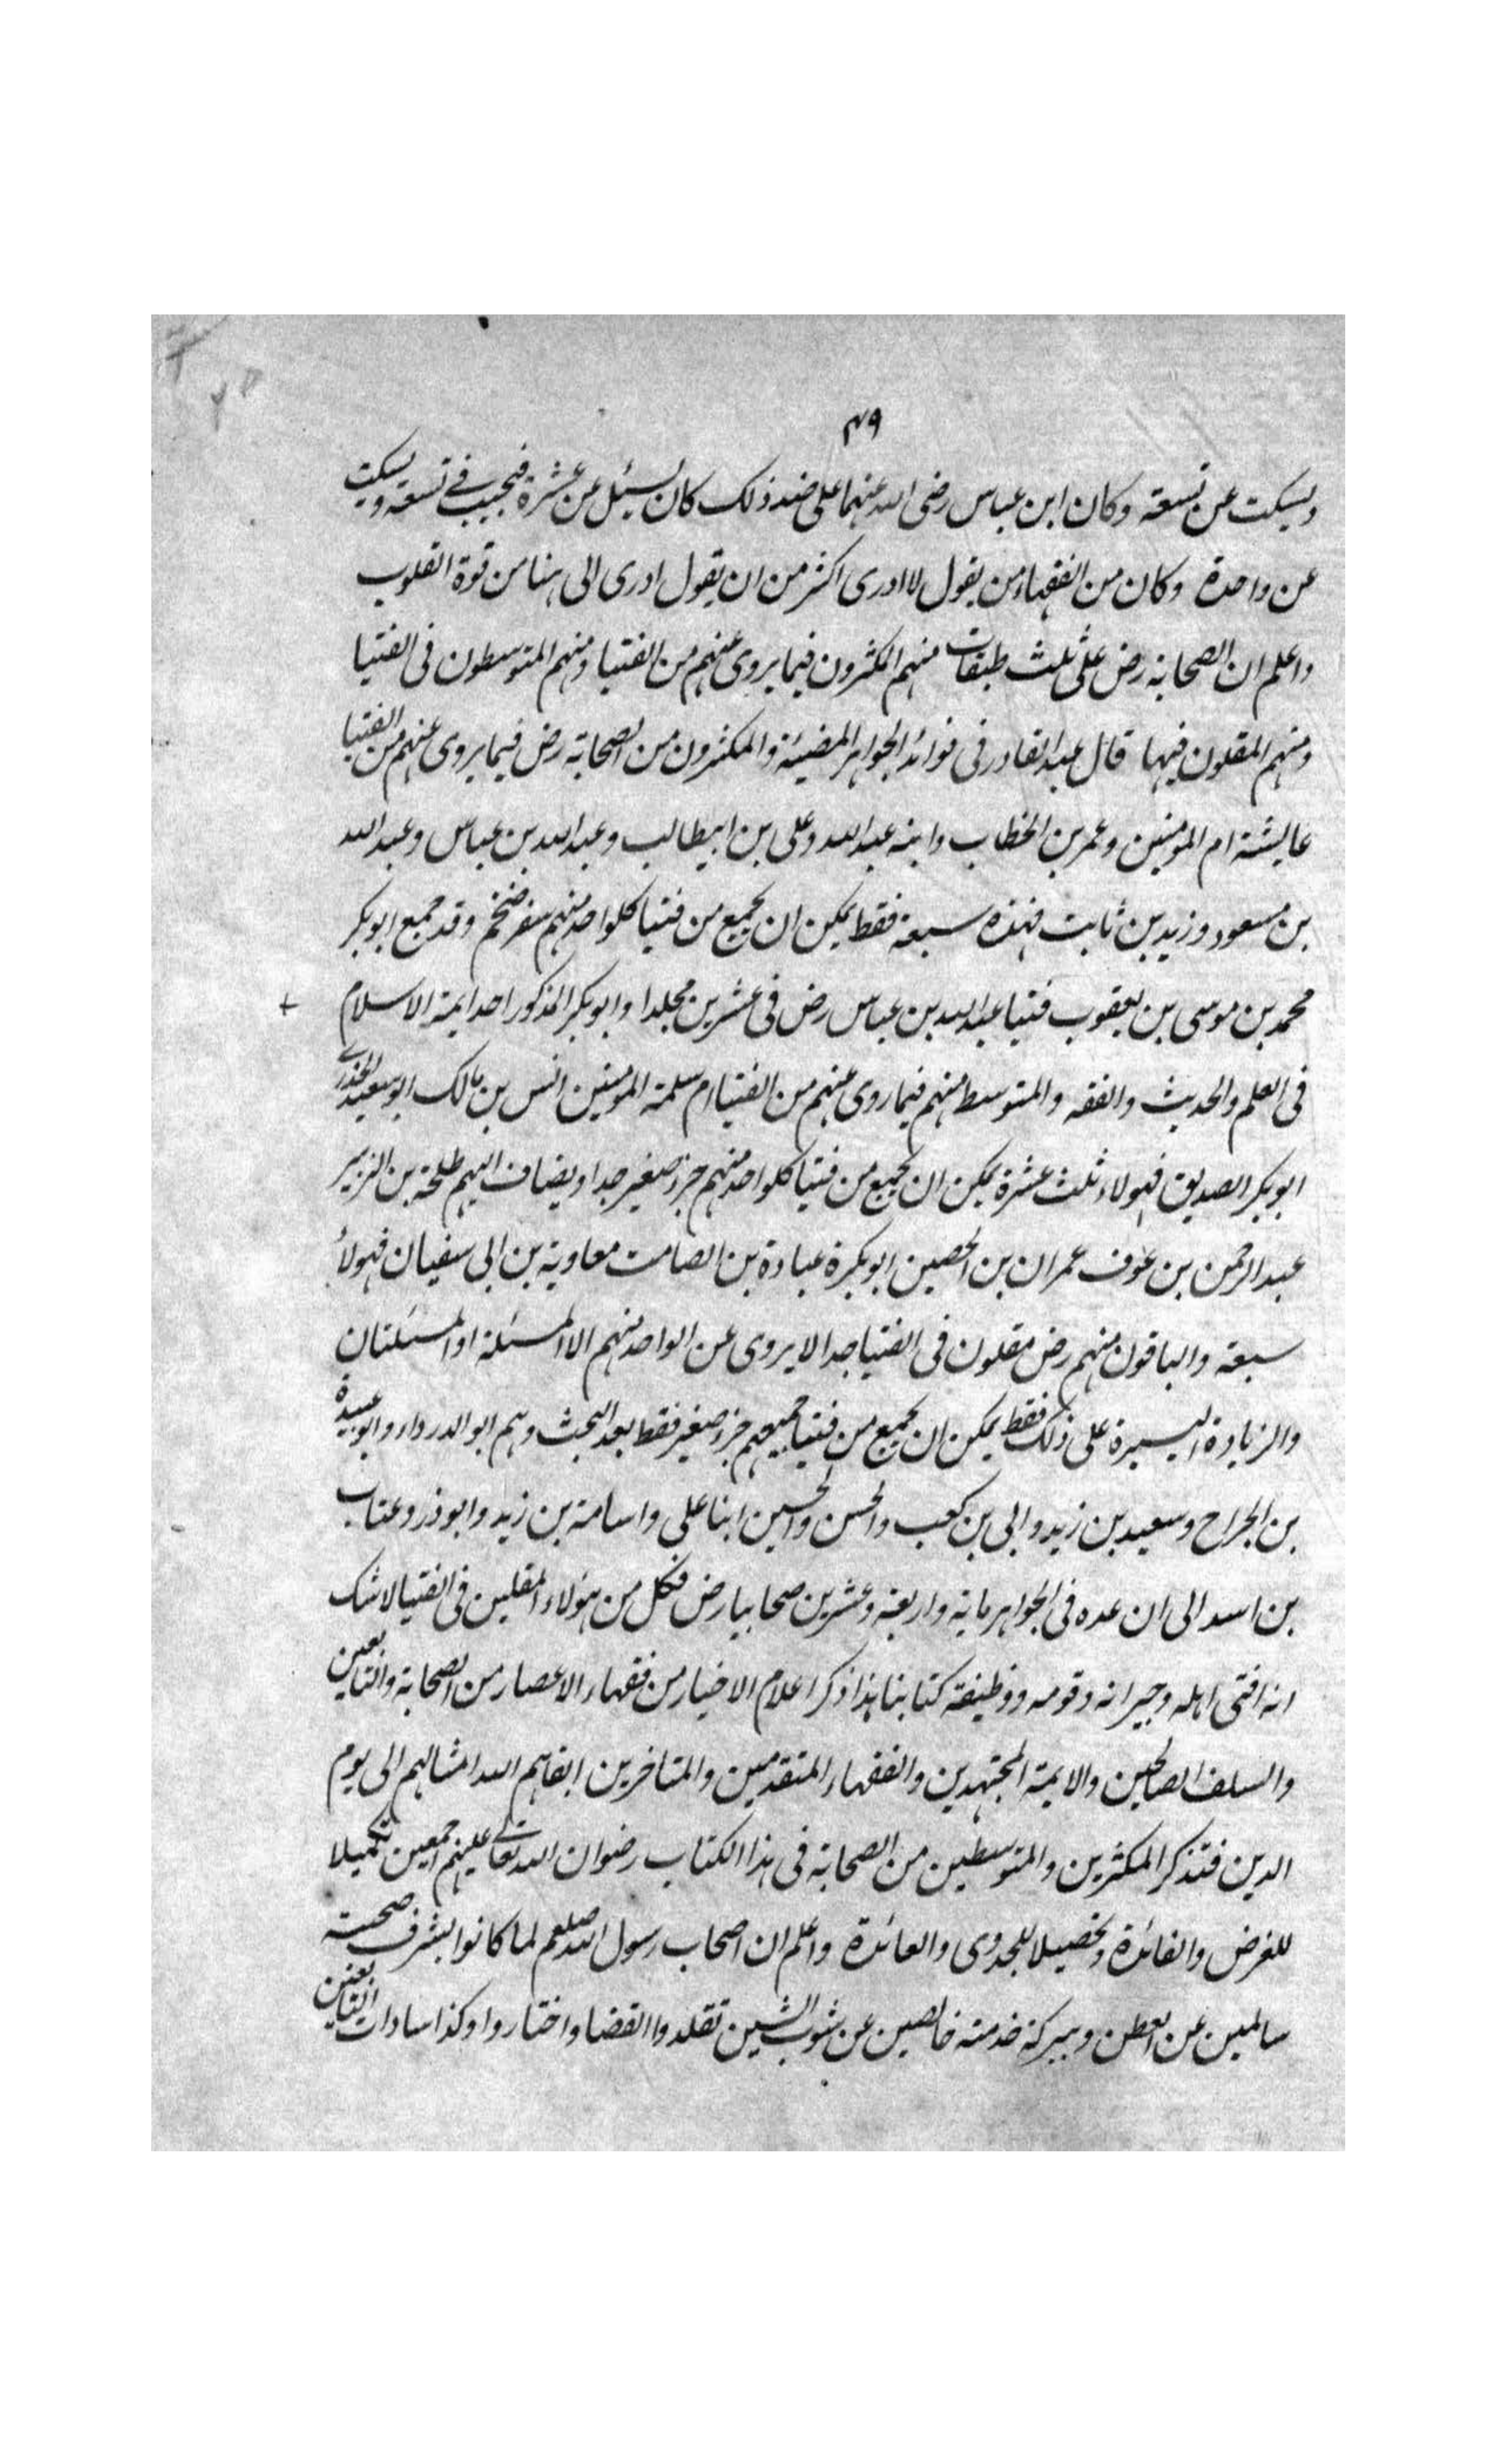 ۴۹
ويسكت عن تسعة وكان ابن عباس رضى الله عنهما على ضد ذلك كان يسئل عن عشرة فيجيب فى تسعة ويسكت
عن واحدة وكان من الفقهاء من يقول لا ادرى اكثر من ان يقول ادرى الى هنا من قوة القلوب
واعلم ان الصحابة رض على ثلث طبقات منهم المكثرون فيما يروى عنهم من الفتيا ومنهم المتوسطون فى الفتيا
ومنهم المقلون فيها قال عبد القادر فى فوائد الجواهر المضيئة والمكثرون من الصحابة رض فيما يروى عنهم من الفتيا
عايشة ام المومنين وعمر بن الخطاب وابنه عبد الله وعلى بن ابيطالب وعبد الله بن عباس وعبد الله
بن مسعود وزيد بن ثابت فهذه سبعة فقط يمكن ان يجمع من فتيا كلواحد منهم سفر ضخم وقد جمع ابو بكر
محمد بن موسى بن يعقوب فتيا عبد الله بن عباس رض فى عشرين مجلدا وابو بكر المذكور احد ايمة الاسلام
فى العلم والحديث والفقه والمتوسط منهم فيما روى عنهم من الفتيا ام سلمة المومنين انس بن مالك ابو سعيد الخدرى
ابو بكر الصديق فهولاء ثلث عشرة يمكن ان يجمع من فتيا كلواحد منهم جزء صغير جدا ويضاف اليهم طلحة بن الزبير
عبد الرحمن بن عوف عمران بن الحصين ابو بكرة عبادة بن الصامت معاوية بن ابى سفيان فهولاء
سبعة والباقون منهم رض مقلون فى الفتيا جدا لا يروى عن الواحد منهم الا المسئلة او المسئلتان
والزيادة اليسيرة على ذلك فقط يمكن ان يجمع من فتيا جميعهم جزء صغير فقط بعد البحث وهم ابو الدرداء وابو عبيدة
بن الجراح وسعيد بن زيد وابى بن كعب والحسن والحسين ابنا على واسامة بن زيد وابو ذر وعتاب
بن اسد الى ان عده فى الجواهر ماية واربعة وعشرين صحابيا رض فكل من هولاء المقلين فى الفتيا لا شك
انه افتى اهله وجيرانه وقومه ووظيفة كتابنا هذا ذكر اعلام الاخيار من فقهاء الاعصار من الصحابة والتابعين
والسلف الصالحين والايمة المجتهدين والفقهاء المتقدمين والمتاخرين ابقاهم الله امثالهم الى يوم
الدين فنذكر المكثرين والمتوسطين من الصحابة فى هذا الكتاب رضوان الله تعالى عليهم اجمعين تكميلا
للغرض والفائدة وتحصيلا للجدوى والعائدة واعلم ان اصحاب رسول الله صلعم لما كانوا بشرف صحبته
سالمين عن الطعن وببركة خدمته خالصين عن شوب الشين تقلدوا القضا واختاروا وكذا سادات التابعين